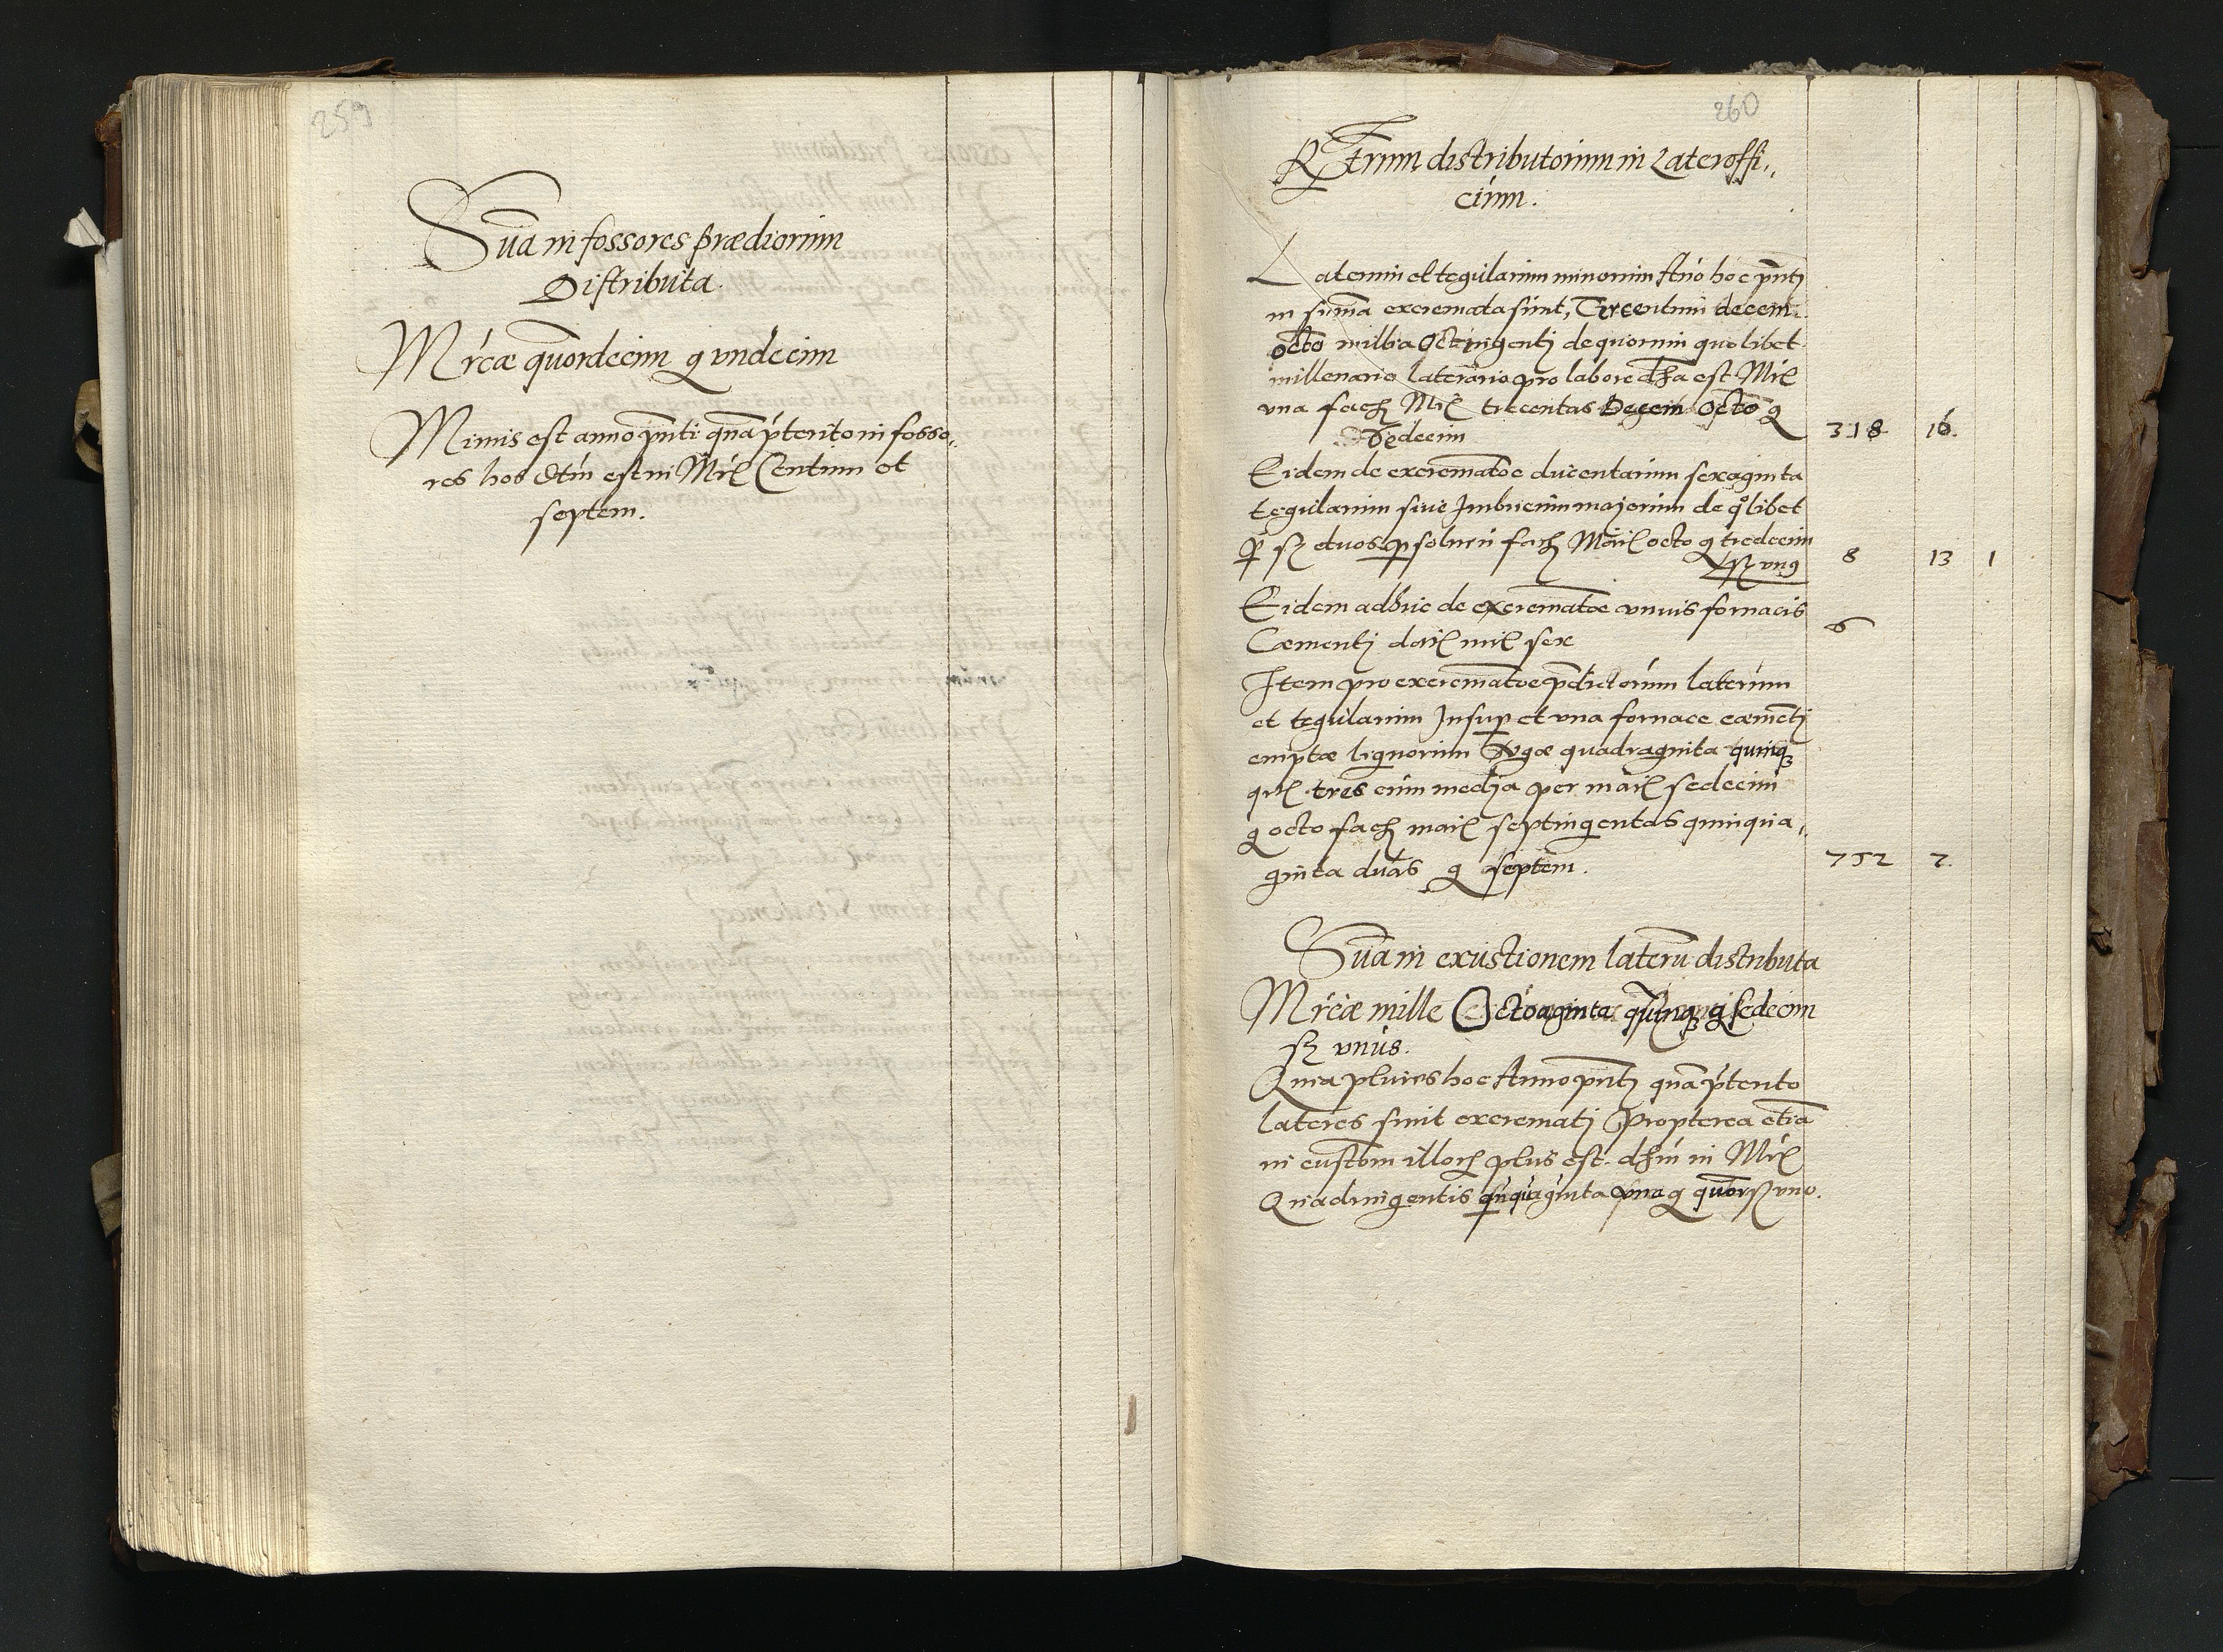 259
Suma in fossores prædiorum
Distributa.
Mrcæ quordecim g vndecim
Minus est anno pnti quam pterito in fosso,,
res hos dtm est in Mrc Centum et
septem.
260
distributorum in Lateroffi,,
cium.
Laterum et tegularum minorum Año hoc pnti
in suma excremata sunt, Trecentum decem
octo millia Octingenti de quorum quolibet
millenario laterario pro labore data est Mrc
vna fach Mrc trecentas Decem Octo g
Sedecim 318 16.
Eidem de excrematoe ducentarum sexaginta
tegularum siue Imbricum majorum de qolibet
p ß duos psolueñ fach Marc octo g tredecim
ß vnus 8 13 1
Eidem adhuc de excrematoe vnius fornacis
Cæmenti mrc sex 6
Item pro excrematoe pdictorum laterum
et tegularum Insup et vna fornace cæmeti
emptæ lignorum quadraginta quinq
tres cum media per marc sedecim
g octo fach marc septingentas quinqua,,
ginta duas g septem. 752 7.
Suma in exustionem lateru distributa
Mrcæ mille Octoaginta quinq g sedecim
ß vnus.
Quia plures hoc Anno pnti quam pterito
lateres sunt excremati Propterea etiã
in custom illorum plus est in Mrc
Quadringentis quinquaginta vna g quor ß vno.